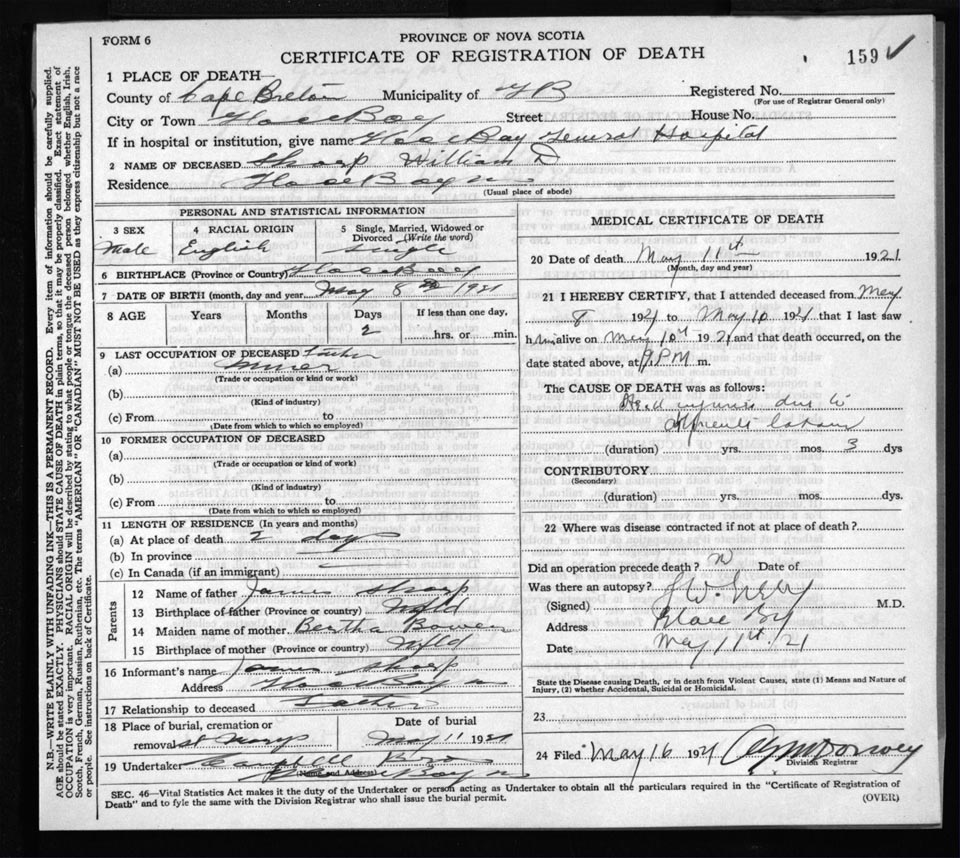 FORM 6
PROVINCE OF NOVA SCOTIA
CERTIFICATE OF REGISTRATION OF DEATH
159
1 PLACE OF DEATH—
County of Cape Breton Municipality of G B Registered No.
(For use of Registrar General only)
City or Town Glace Bay Street House No.
If in hospital or institution, give name Glace Bay General Hospital
2 NAME OF DECEASED Sharp William D
Residence Glace Bay
(Usual place of abode)
PERSONAL AND STATISTICAL INFORMATION
3 SEX 4 RACIAL ORIGIN 5 Single, Married, Widowed or Divorced (Write the word)
Male English Single
6 BIRTHPLACE (Province or Country) Glace Bay
7 DATE OF BIRTH (month, day and year May 8 1921
8 AGE Years Months Days If less than one day,
2 hrs. or min.
9 LAST OCCUPATION OF DECEASED Father
(a) miner
(Trade or occupation or kind or work)
(b)
(Kind of industry)
(c) From to
(Date from which to which so employed)
10 FORMER OCCUPATION OF DECEASED
(a)
(Trade or occupation or kind of work)
(b)
(Kind of industry)
(c) From to
(Date from which to which so employed)
11 LENGTH OF RESIDENCE (In years and months)
(a) At place of death 2 days
(b) In province
(c) In Canada (if an immigrant)
Parents
12 Name of father James Sharp
13 Birthplace of father (Province or country) Nfld
14 Maiden name of mother Bertha Bowen
15 Birthplace of mother (Province or country) Nfld
16 Informant's name James Sharp
Address Glace Bay
17 Relationship to deceased Father
18 Place of burial, cremation or Date of burial
removal May 11 1921
19 Undertaker Campbell Bros
(Name and Address) Glace Bay
MEDICAL CERTIFICATE OF DEATH
20 Date of death May 11th 1921
(Month, day and year)
21 I HEREBY CERTIFY, that I attended deceased from May
8 1921 to May 10 1921 that I last saw
him alive on May 10th 1921 and that death occurred, on the
date stated above, at 9 PM m.
The CAUSE OF DEATH was as follows:
injuries due to
difficult labour
(duration) yrs. mos. 3 dys
CONTRIBUTORY
(Secondary)
(duration) yrs. mos. dys.
22 Where was disease contracted if not at place of death?
Did an operation precede death? N Date of
Was there an autopsy?
(Signed) M.D.
Address Glace By
Date May 11th 21
State the Disease causing Death, or in death from Violent Causes, state (1) Means and Nature of
Injury, (2) whether Accidental, Suicidal or Homicidal.
23
24 Filed May 16 1921
Division Registrar
SEC. 46—Vital Statistics Act makes it the duty of the Undertaker or person acting as Undertaker to obtain all the particulars required in the "Certificate of Registration of
Death" and to fyle the same with the Division Registrar who shall issue the burial permit.
(OVER)
N.B.—WRITE PLAINLY WITH UNFADING INK—THIS IS A PERMANENT RECORD. Every item of information should be carefully supplied.
AGE should be stated EXACTLY. PHYSICIANS should STATE CAUSE OF DEATH in plain terms, so that it may be properly classified. Exact statement of
OCCUPATION is very important. RACIAL ORIGIN will be described by stating to what people or tongue the deceased person belonged, whether English, Irish,
Scotch, French, German, Russian, Ruthenian, etc. The terms "AMERICAN" OR "CANADIAN" MUST NOT BE USED as they express citizenship but not a race
or people. See instructions on back of Certificate.